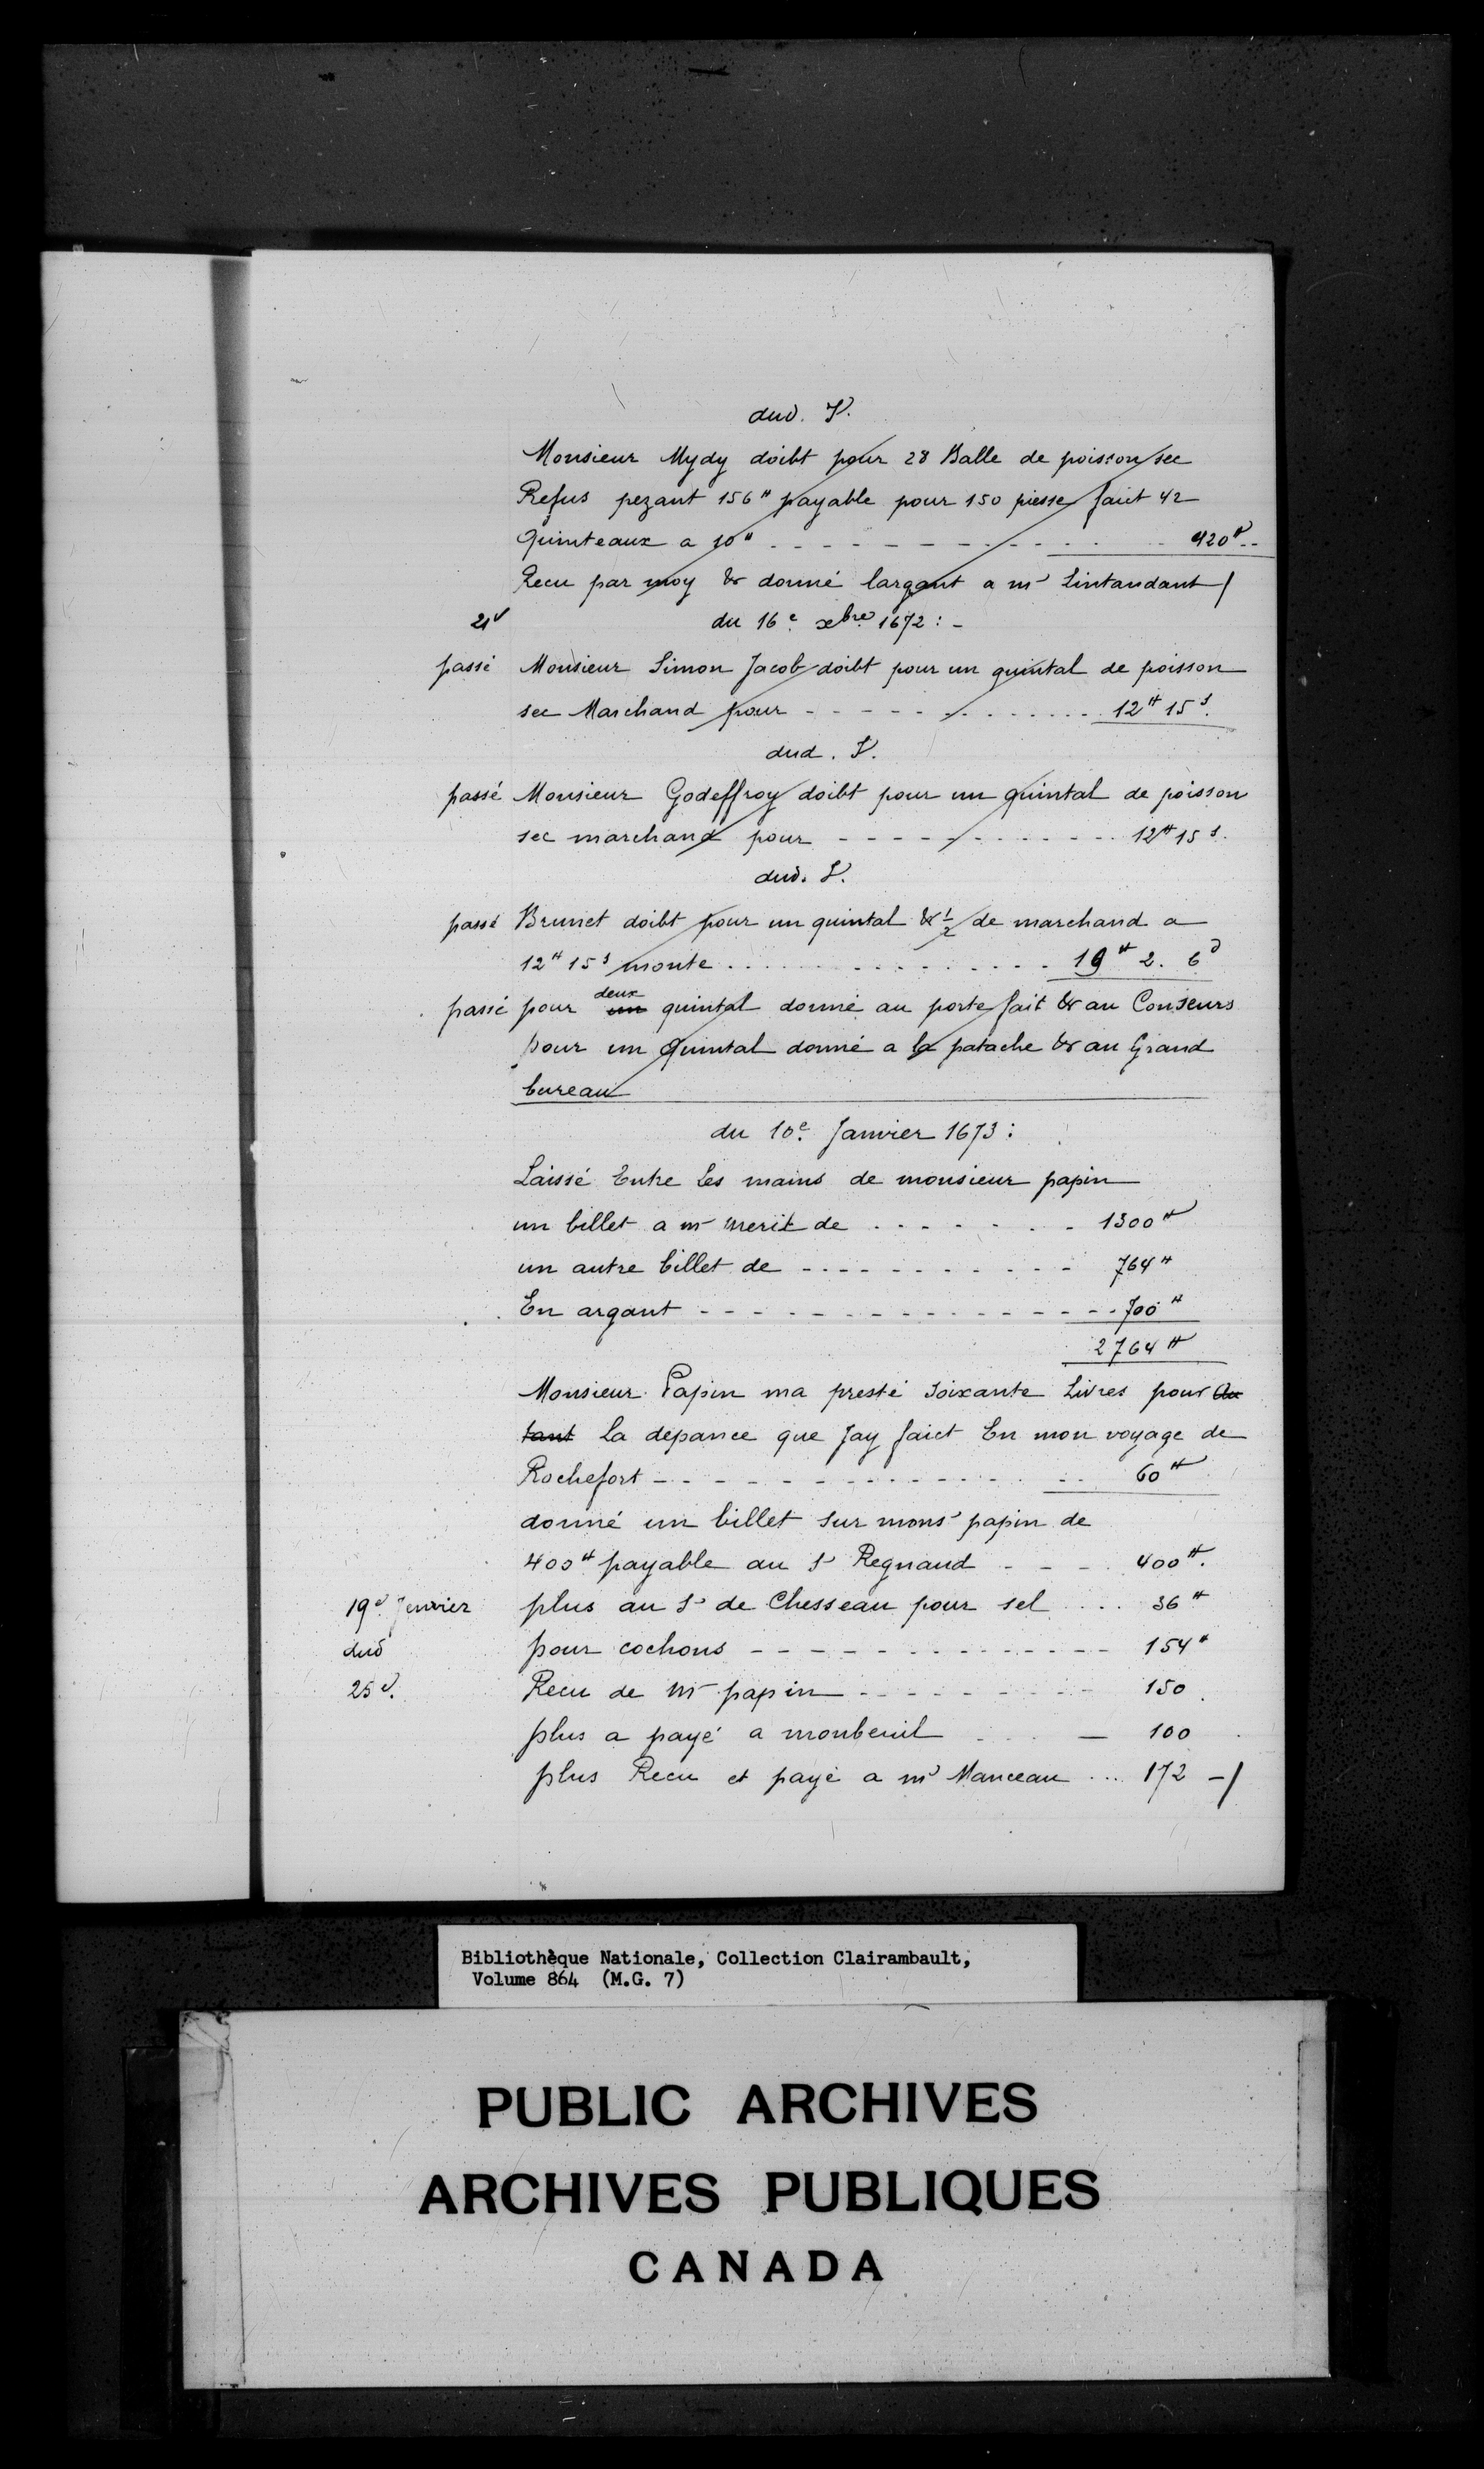 dud. J.
Monsieur Mydy doibt pour 28 Balle de poisson sec
Refus pezant 156 ₶ payable pour 150 piesse faict 42
Quinteaux a 10 ₶ - - - - - - - - - - 420 ₶ --
Recu par moy & donné largant a mr Lintandant /
21 v
du 16e xbre 1672 : -
passé Monsieur Simon Jacob doibt pour un quintal de poisson
sec Marchand pour - - - - - - - - - - 12 ₶ 15 s.
dud. J.
passé Monsieur Godeffroy doibt pour un quintal de poisson
sec marchand pour - - - - - - - - - - 12 ₶ 15 s.
dud. J.
passé Brunet doibt pour un quintal & 1/2 de marchand a
12 ₶ 15 s monte . . . . . . . . . . 19 ₶ 2. 6 d
deux
passé pour un quintal donné au porte fait & au Conseurs
pour un Quintal donné a la patache & au Grand
bureau
du 10e. Janvier 1673 :
Laissé Entre Les mains de monsieur papin
un billet a mr merit de . - - - - - - 1300 ₶
un autre billet de - - - - - - - - - - 764 ₶
En argant - - - - - - - - - - - - 700 ₶
2764 ₶
Monsieur Papin ma presté soixante Livres pour Au
tant La depance que Jay faict En mon voyage de
Rochefort - - - - - - - - - - - - 60 ₶
donné un billet sur monsr papin de
400 ₶ payable au Sr Regnaud - - - 400 ₶.
19e Jenvier plus au Sr de Chesseau pour sel . . . . 36 ₶
dud pour cochons - - - - - - - - - - - - 154 ₶
25 e. Recu de Mr papin - - - - - - - - - 150
plus a payé a monbeuil . . . . — 100
plus Recu et payé a mr Manceau . . . 172 -/
Bibliothèque Nationale, Collection Clairambault,
Volume 864 (M.G. 7)
PUBLIC ARCHIVES
ARCHIVES PUBLIQUES
CANADA